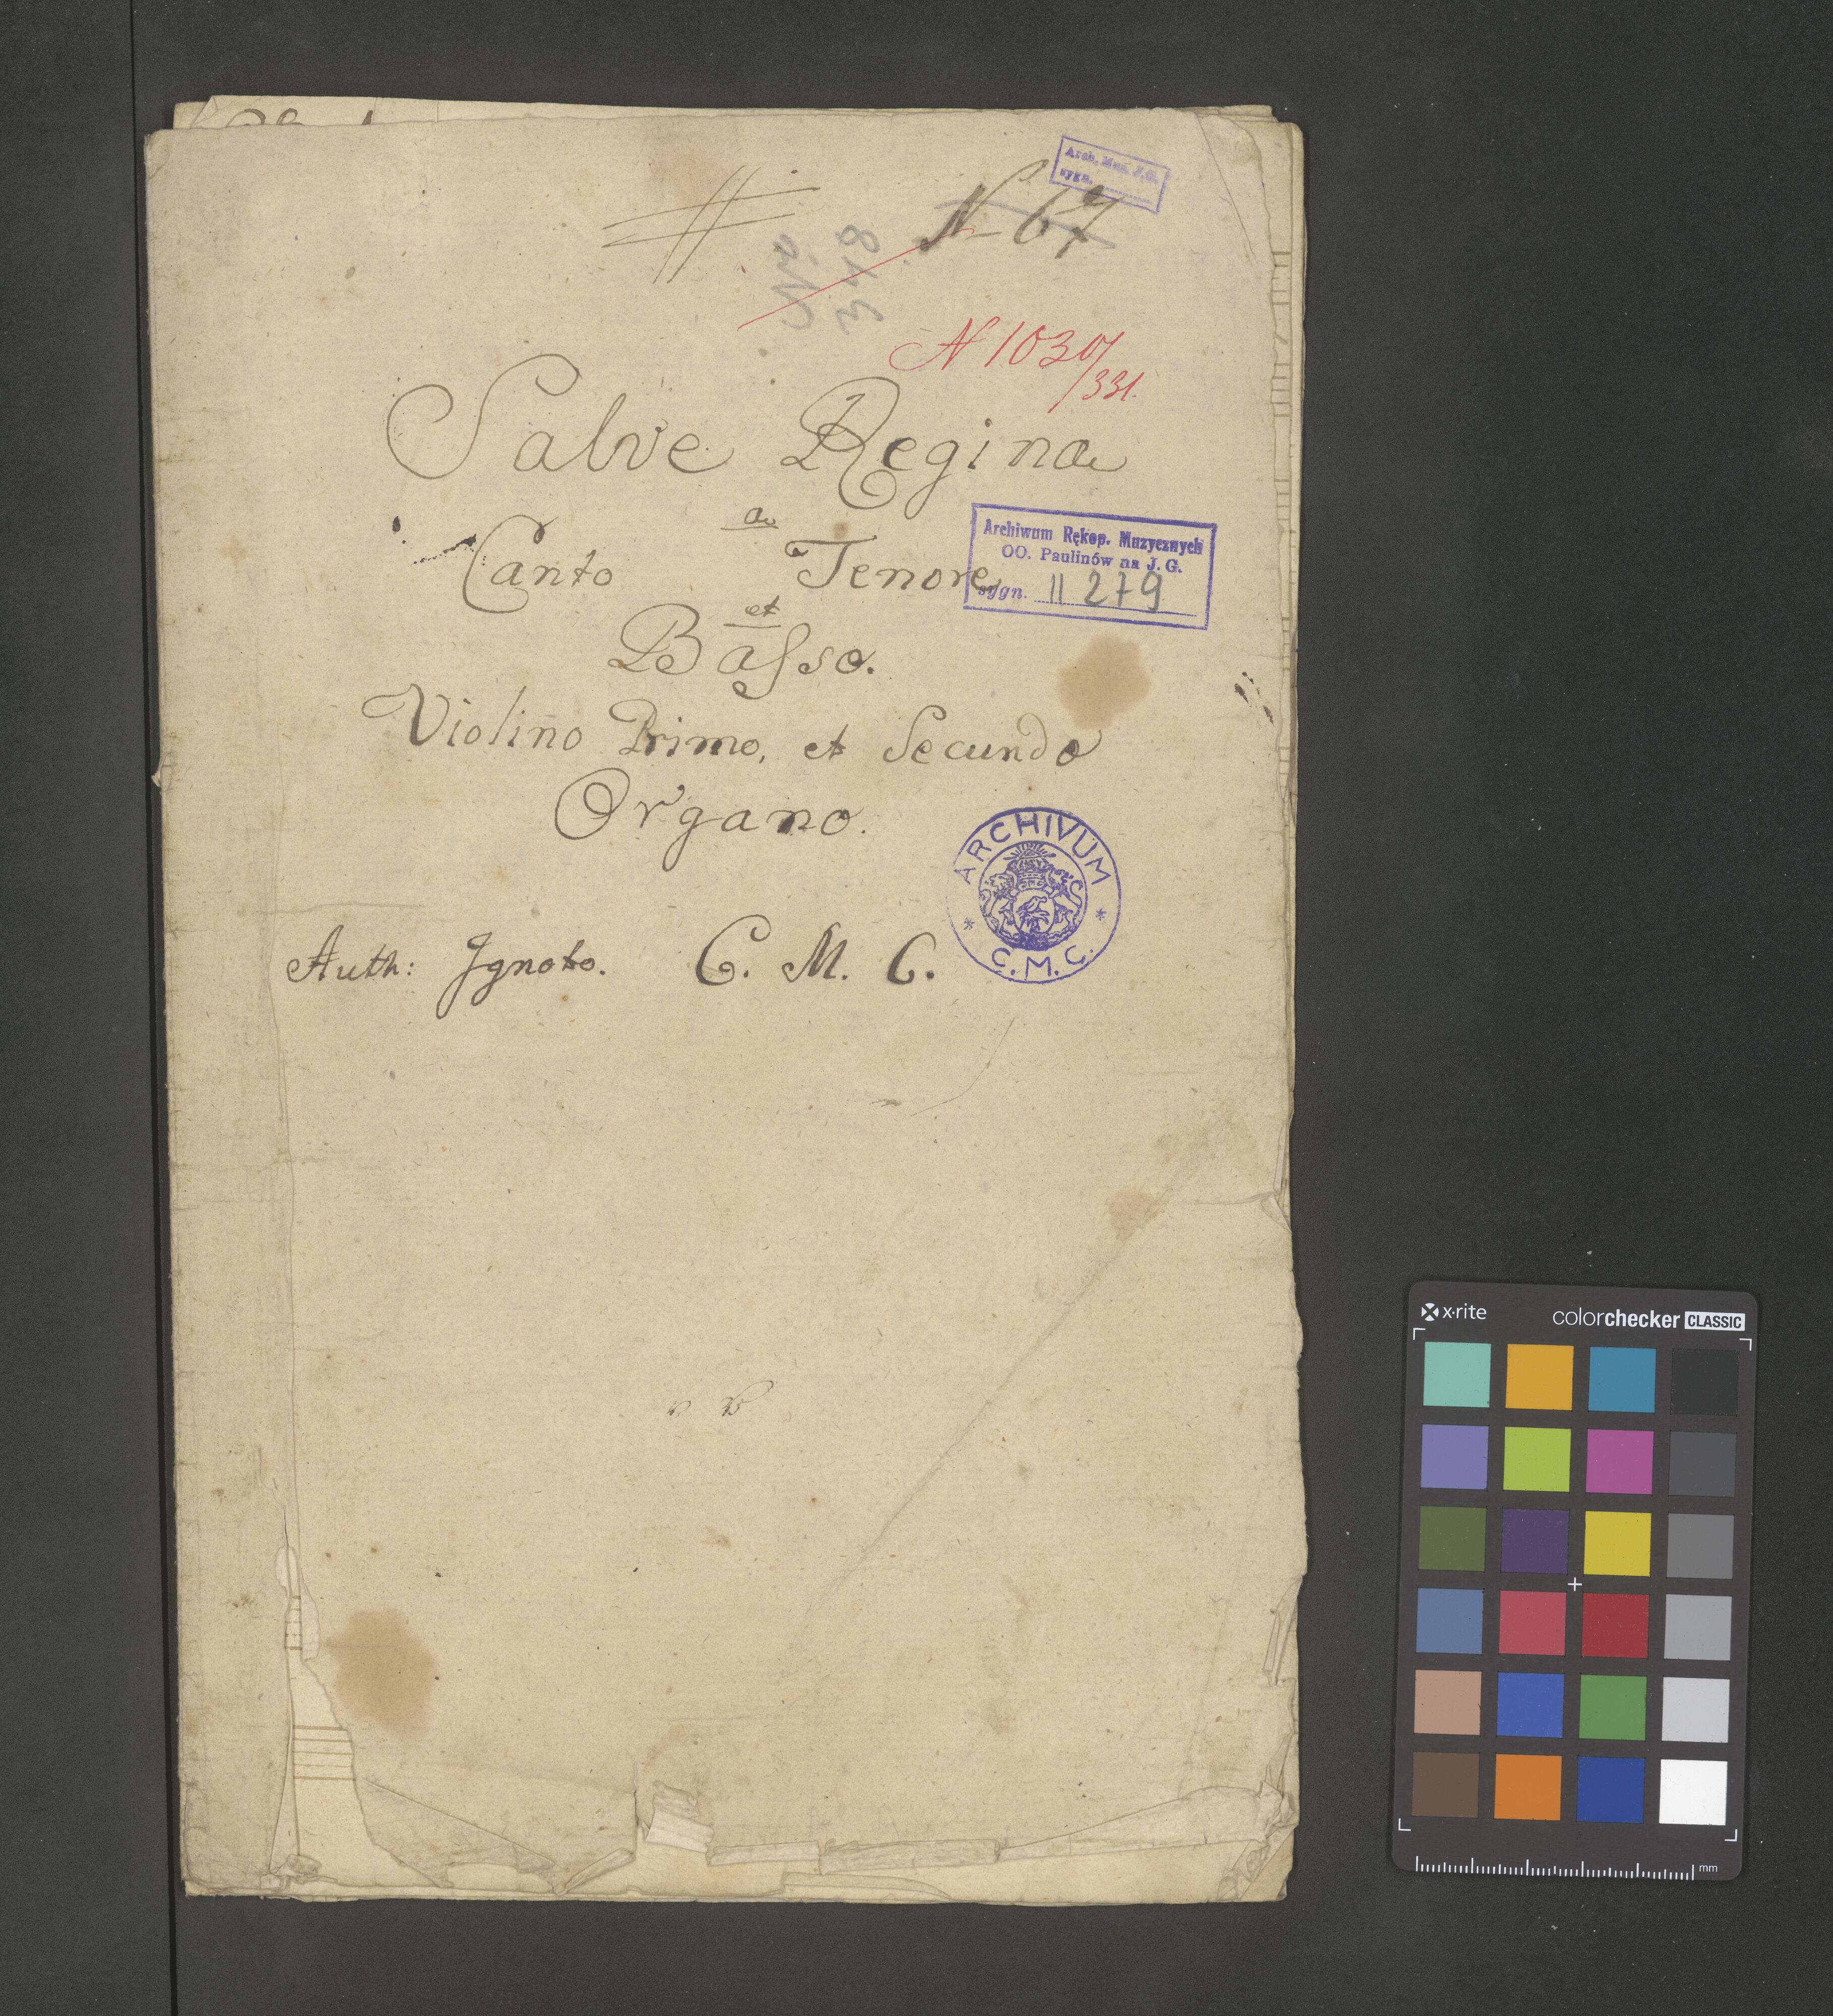 Arch. Muz. J.G.
sygn.
N 67
No
318
N 1030/
/331.
Salve Regina
a
Canto Tenore
et
Basso.
Archiwum Rękop. Muzycznych
OO. Paulinów na J. G.
sygn. II 279
Violino Primo, et Secundo
Organo.
ARCHIVUM
* C.M.C. *
Auth: Ignoto. C. M. C.
x·rite colorchecker CLASSIC
mm